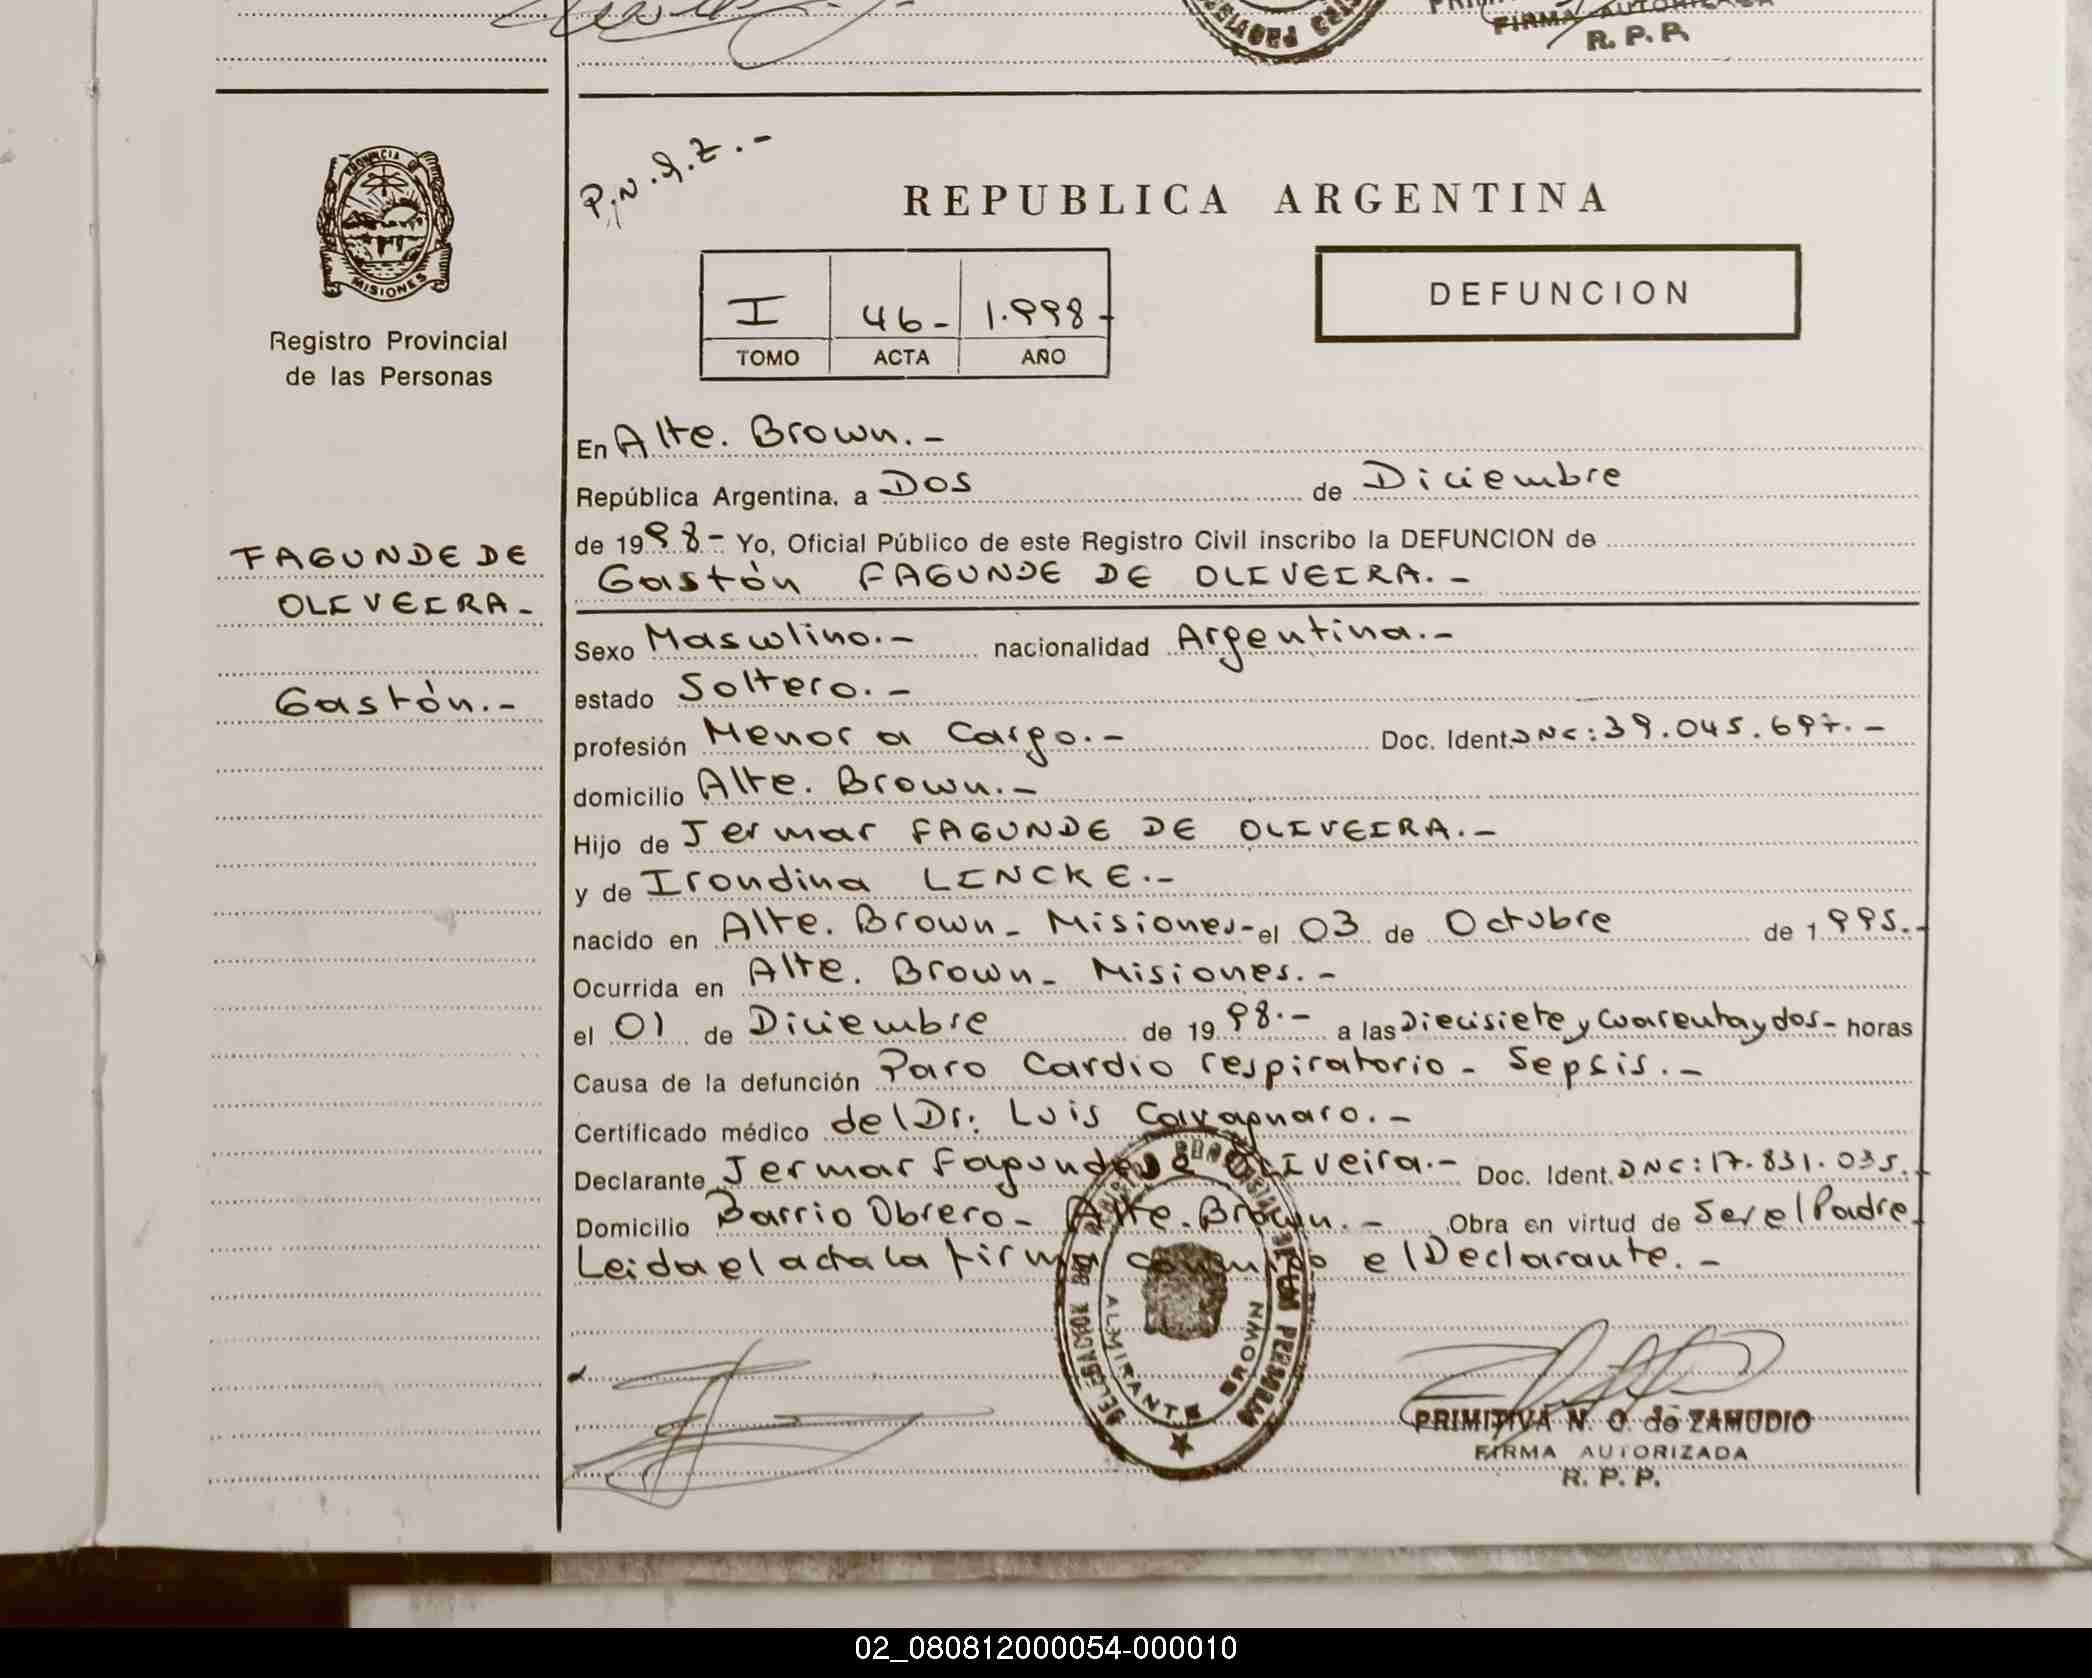 FIRMA AUTORIZADA
R. P. P.
PROVINCIA DE
MISIONES
Registro Provincial
de las Personas
FAGUNDE DE
OLIVEIRA-
Gastón.-
P.N.A.Z.-
REPUBLICA ARGENTINA
I 46- 1.998-
TOMO ACTA AÑO
DEFUNCION
En Alte. Brown.-
República Argentina, a Dos de Diciembre
de 1998- Yo, Oficial Público de este Registro Civil inscribo la DEFUNCION de
Gastón FAGUNDE DE OLIVEIRA.-
Sexo Masculino.- nacionalidad Argentina.-
estado Soltero.-
profesión Menor a Cargo.- Doc. Ident. DNI: 39.045.697.-
domicilio Alte. Brown.-
Hijo de Jermar FAGUNDE DE OLIVEIRA.-
y de Irondina LINCKE.-
nacido en Alte. Brown- Misiones- el 03 de Octubre de 1995.-
Ocurrida en Alte. Brown- Misiones.-
el 01 de Diciembre de 1998.- a las Diecisiete y Cuarenta y dos- horas
Causa de la defunción Paro Cardio respiratorio - Sepsis.-
Certificado médico del Dr: Luis Cavagnaro.-
Declarante Jermar Fagunde de Oliveira.- Doc. Ident. DNI: 17.831.035.-
Domicilio Barrio Obrero- Alte. Brown.- Obra en virtud de Ser el Padre
Leida el acta la firma conmigo el Declarante.-
ALMIRANTE BROWN
PRIMITIVA N. O. de ZAMUDIO
FIRMA AUTORIZADA
R. P. P.
02_080812000054-000010